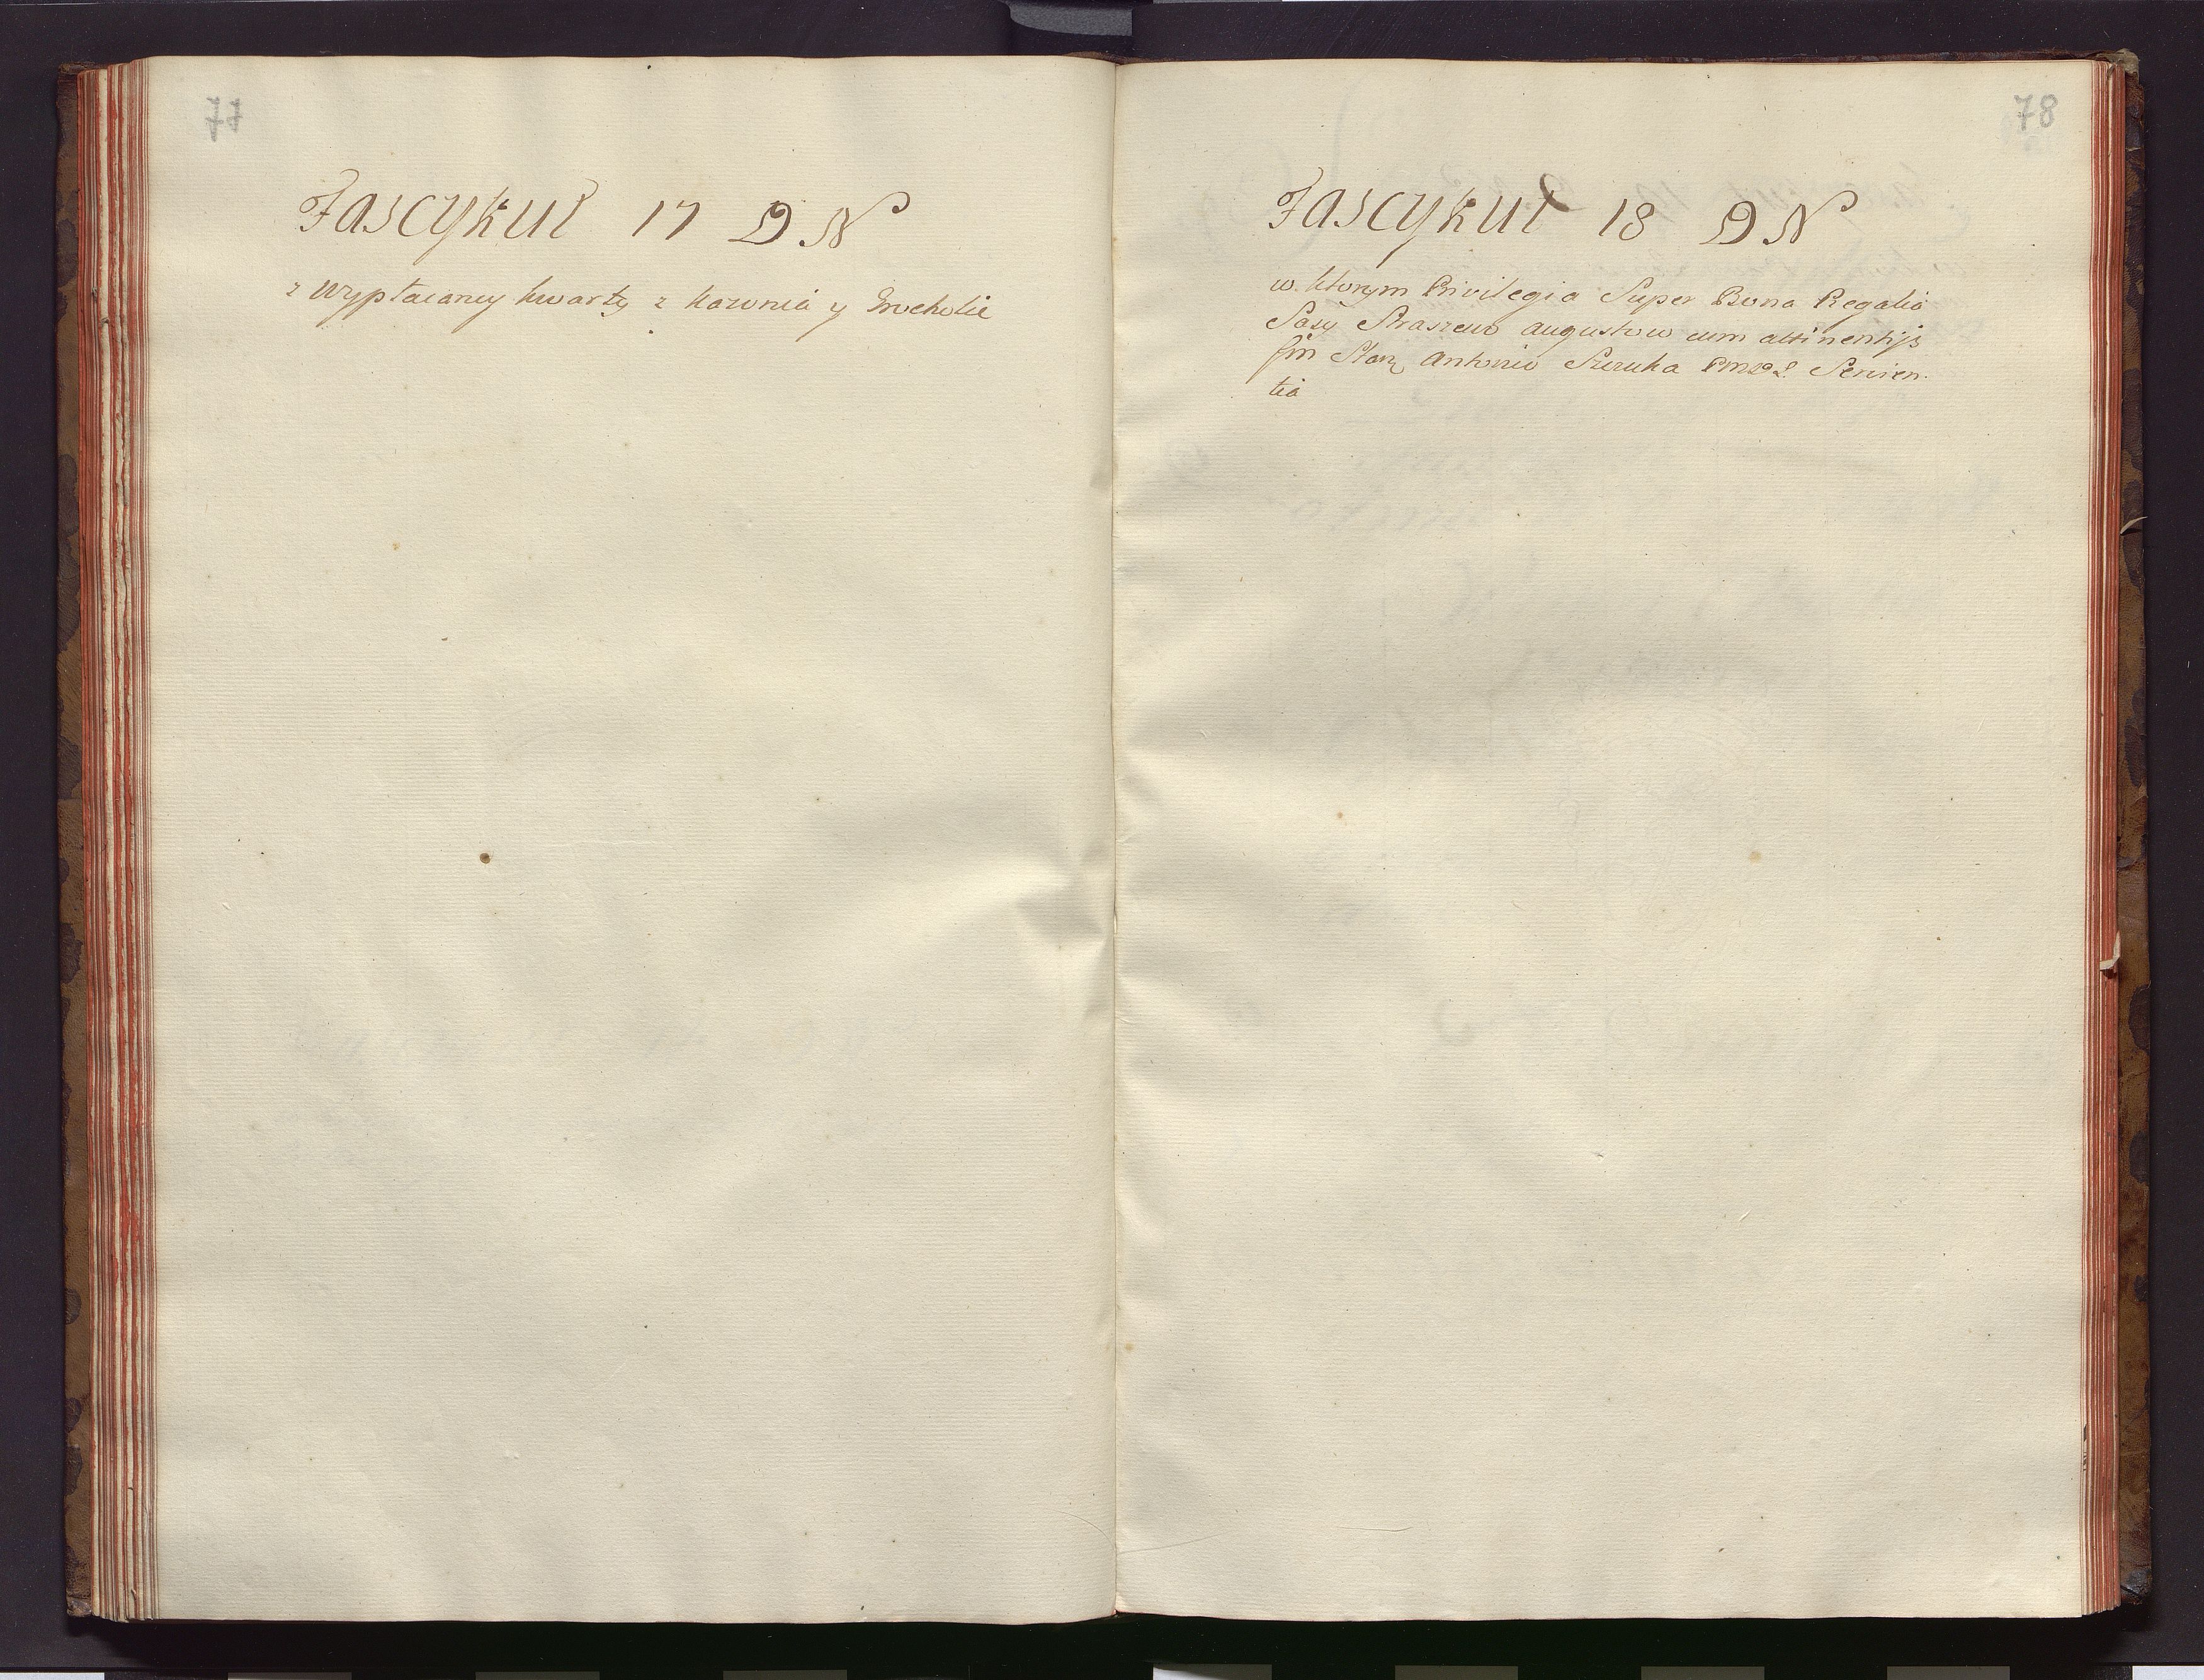 77
Fascykuł 17 D N
z wypłacaney kwarty z Kozonia y Grocholic
78
Fascykuł 18 D N
w ktorym Privilegia Super Bona Regalia
Sasy Straszewo Augustowo cum attinentijs
Antonio Szeruka Servien-
tia